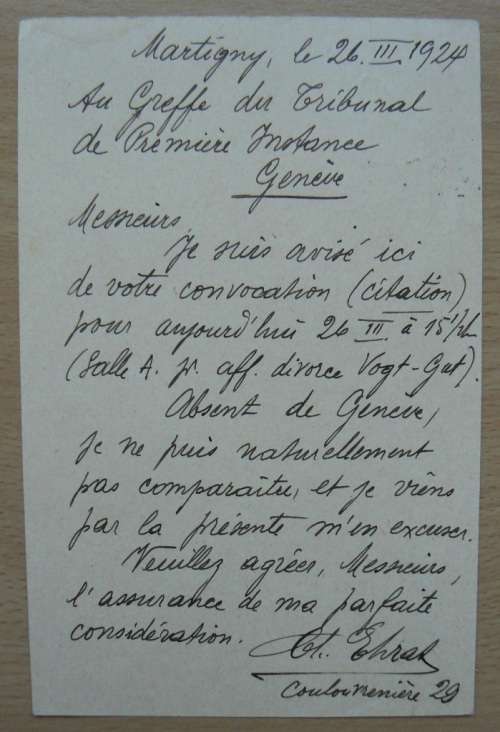 Martigny, le 26. III. 1924
Au Greffe du Tribunal
de Première Instance
Genève
Messieurs,
Je suis avisé ici
de votre convocation (citation)
pour aujourd'hui 26 III. à 15 1/2 h
(Salle A. pr. aff. divorce Vogt-Gut).
Absent de Genève,
je ne puis naturellement
pas comparaître, et je viens
par la présente m'en excuser.
Veuillez agréer, Messieurs,
l'assurance de ma parfaite
considération.
Ehrat
Coulouvrenière 29